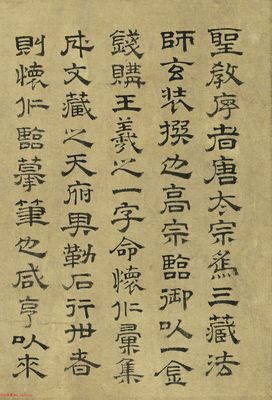 聖教序者唐太宗為三藏法
師玄奘撰也高宗臨御以一金
錢購王羲之一字命懷仁彙集
成文藏之天府其勒石行世者
則懷仁臨摹筆也咸亨以來